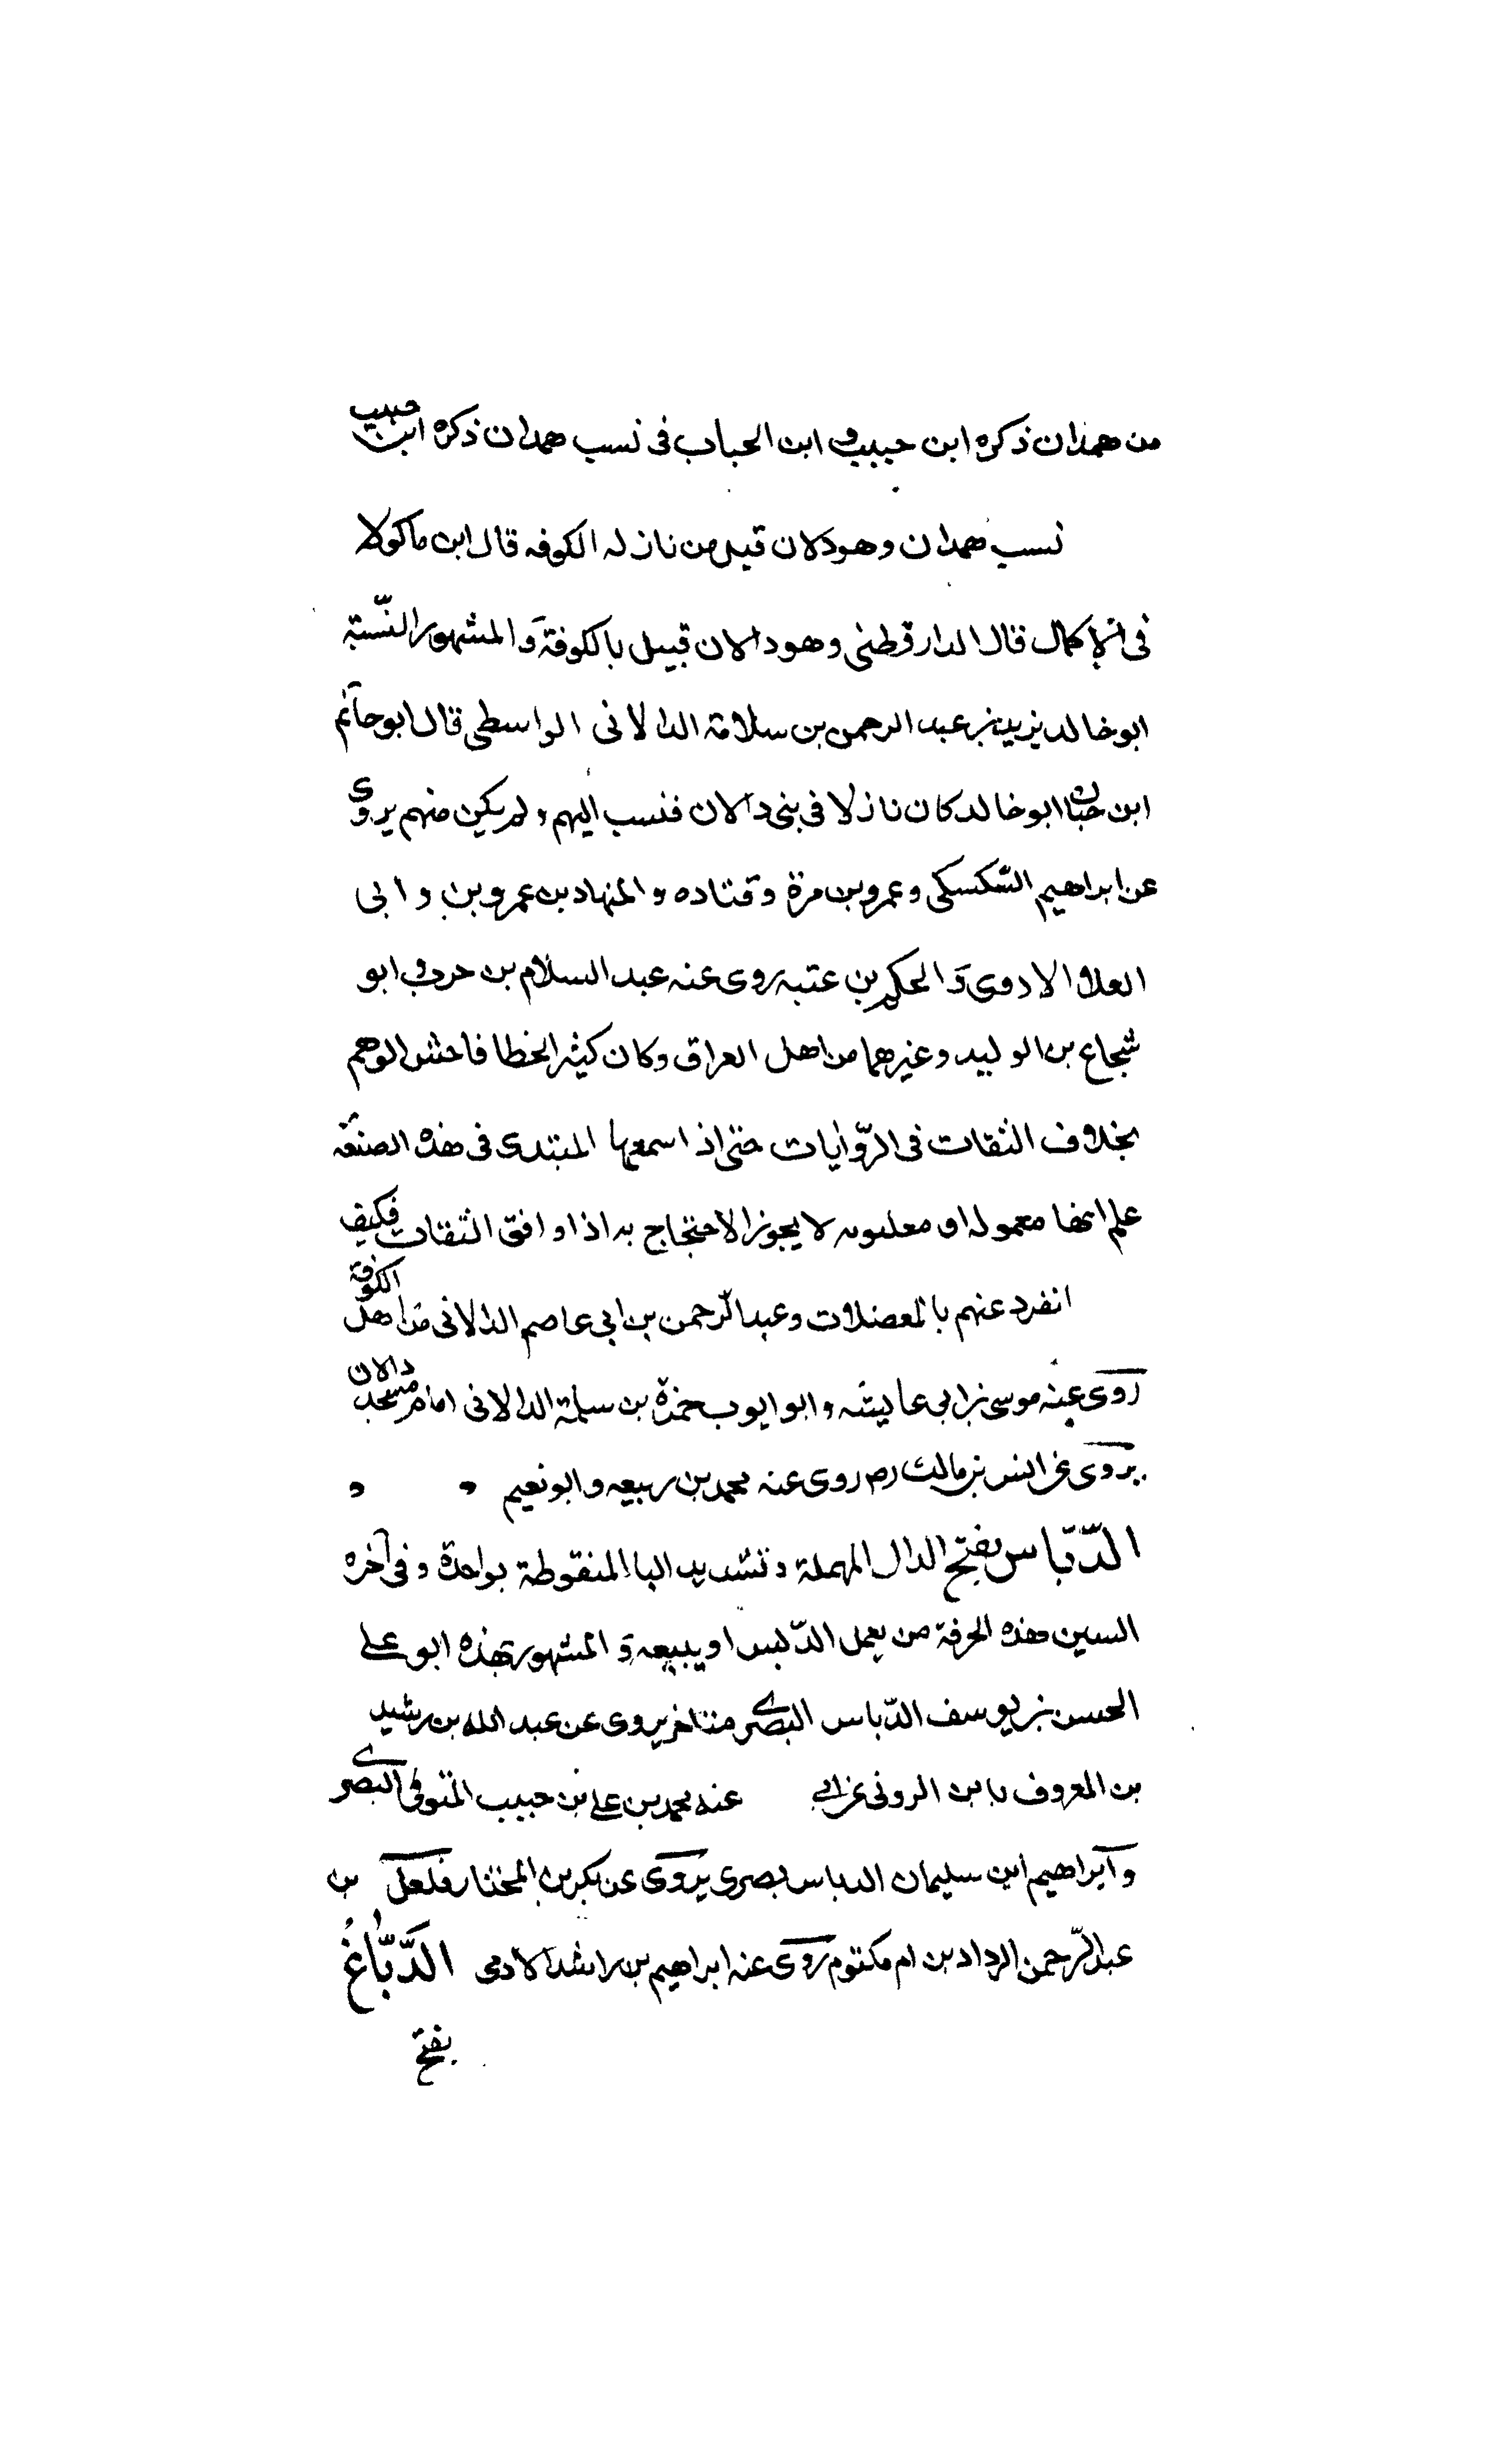 من همدان ذكره ابن حبيب و ابن الحباب فى نسب همدان ذكره ابن حبيب
نسب همدان وهودلان قبيل من نازله الكوفه قال ابن ماكولا
فى الإكمال قال الدار قطنى وهو دالان قبيل بالكوفة و المشهور النّسبة
ابو خالد يزيد بن عبد الرحمن بن سلامة الدالانى الواسطى قال ابو حاتم
ابن حبان ابو خالد كان نازلا فى بنى دالان فنسب اليهم و لم يكن منهم يروى
عن ابراهيم السّكسكى و عمرو بن مرة و قتاده و المنهاد بن عمرو بن و ابى
العلا الادوى و الحكم بن عتبه روى عنه عبد السلام بن حرب و ابو
شجاع بن الوليد و غيرهما من اهل العراق وكان كثير الخطا فاحش الوهم
بخلاف الثقات فى الرّوايات حتى اذا سمعها المبتدى فى هذه الصنعة
علم انها معموله او معلومه لا يجوز الاحتجاج به اذا وافق الثقات فكيف
انفرد عنهم بالمعضلات و عبد الرّحمن بن ابى عاصم الدالانى من اهل الكوفة
روى عنه موسى بن ابى عايشه و ابو ايوب حمزة بن سلمة الدالانى امام مسجد دالان
يروى عن انس بن مالك رض روى عنه محمد بن ربيعه و ابو نعيم
الدّبّاس بفتح الدال المهملة و تشديد البا المنقوطة بواحدة و فى آخره
السين هذه الحرفة من يعمل الدّبس او يبيعه و المشهور بهذه ابو على
الحسن بن يوسف الدّباس البصرى متاخر يروى عن عبد الله بن رشيد
بن المعروف بابن الرونى عن ابى عنه محمد بن على بن حبيب المتوفى البصرى
و ابراهيم ابن سليمان الدباس بصرى يروى عن بكر بن المختار فلعل بن
عبد الرّحمن الرداد بن ام مكتوم روى عنه ابراهيم بن راشد الادمى الدَّبّاغُ
بفتح